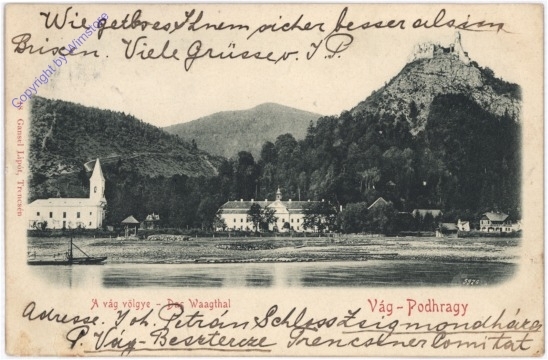 Wie geht es Ihnem, sicher besser als in
Brixen. Viele Grüsse v. J. P.
Copyright by Wimstore
Gansel Lipót, Trencsén
A vág völgye - Das Waagthal
Vág-Podhragy
Adresse. Joh. Petrán Schloss Zsigmondháza
P. Vág-Besztercze Trencsiner Comitat